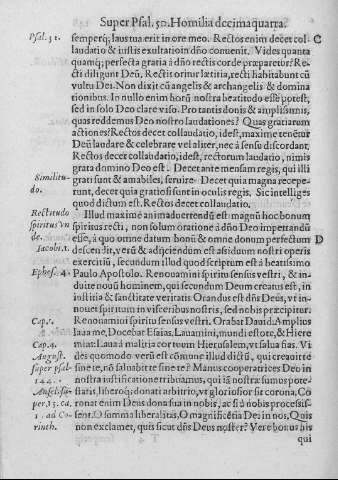 Super Psal. 50. Homilia decimaquarta.
Psal. 32.
semperq; laus tua erit in ore meo. Rectos enim decet col-
C
laudatio & iustis exultatio in dño conuenit. Vides quanta
quamq; perfecta gratia à dño rectis corde præparetur? Re-
cti diligunt Deū. Rectis oritur lætitia, recti habitabunt cū
vultu Dei. Non dixit cū angelis & archangelis & domina
tionibus. In nullo enim horū nostra beatitudo esse potest,
sed in solo Deo clare viso. Pro tantis donis & amplissimis,
quas reddemus Deo nostro laudationes? Quas gratiarum
actiones? Rectos decet collaudatio, idest, maxime tenētur
Deū laudare & celebrare vel aliter, nec à sensu discordat.
Rectos decet collaudatio, idest, rectorum laudatio, nimis
grata domino Deo est. Decet ante mensam regis, qui illi
grati sunt & amabiles, seruire. Decet quia magna recepe-
Similitu-
do.
runt, decet quia gratiosi sunt in oculis regis. Sic intelliges
quod dictum est. Rectos decet collaudatio.
Rectitudo
spiritus vn
de.
Illud maxime animaduertendū est: magnū hoc bonum
spiritus recti, non solum oratione à dño Deo impetrandū
esse, à quo omne datum bonū & omne donum perfectum
D
Iacobi. 1.
descendit, verū & adijciendum est assiduum nostri operis
exercitiū, secundum illud quod scriptum est à beatissimo
Ephes. 4.
Paulo Apostolo. Renouamini spiritu sensus vestri, & in-
duite nouū hominem, qui secundum Deum creatus est, in
iustitia & sanctitate veritatis. Orandus est dñs Deus, vt in-
nouet spiritum in visceribus nostris, sed nobis præcipitur.
Cap. 1.
Renouamini spiritu sensus vestri. Orabat Dauid. Amplius
laua me, Docebat Esaias, Lauamini, mundi estote, & Hiere
Cap. 4.
mias: Laua à malitia cor tuum Hierusalem, vt salua fias. Vi
August.
super psal.
144.
des quomodo verū est cōmune illud dictū, qui creauit te
sine te, nō saluabit te sine te? Manus cooperatrices Deo in
nostra iustificatione tribuamus, qui iā nostræ sumus pote-
statis, liberoq; donati arbitrio, vt gloriosior sit corona, Co
ronat enim Deus dona sua in nobis, ac si à nobis processis-
1. ad Co-
rinth.
sent. O somma liberalitas, O magnificētia Dei in nos, Quis
non exclamet, quis sicut dñs Deus noster? Vere bonus his
qui